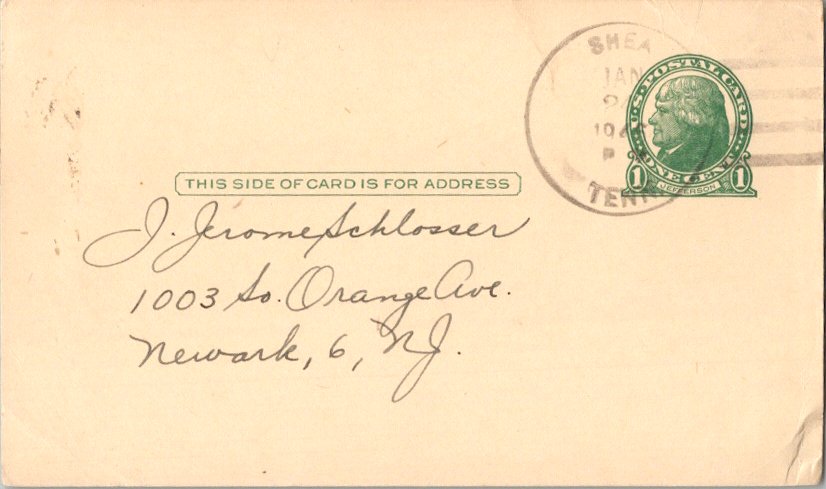 SHEA
JAN
P
TENN
U.S. POSTAL CARD
ONE CENT
1 JEFFERSON 1
THIS SIDE OF CARD IS FOR ADDRESS
J. Jerome Schlosser
1003 So. Orange Ave.
Newark, 6, NJ.